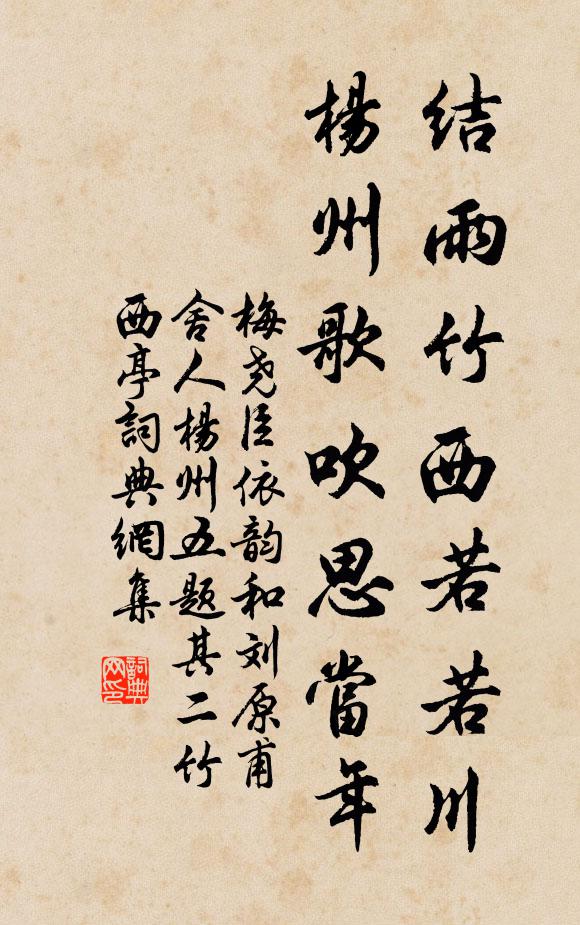 结雨竹西若若川
楊州歌吹思當年
梅尧臣依韵和刘原甫
舍人楊州五题其二竹
西亭詞典網集
詞典
网印